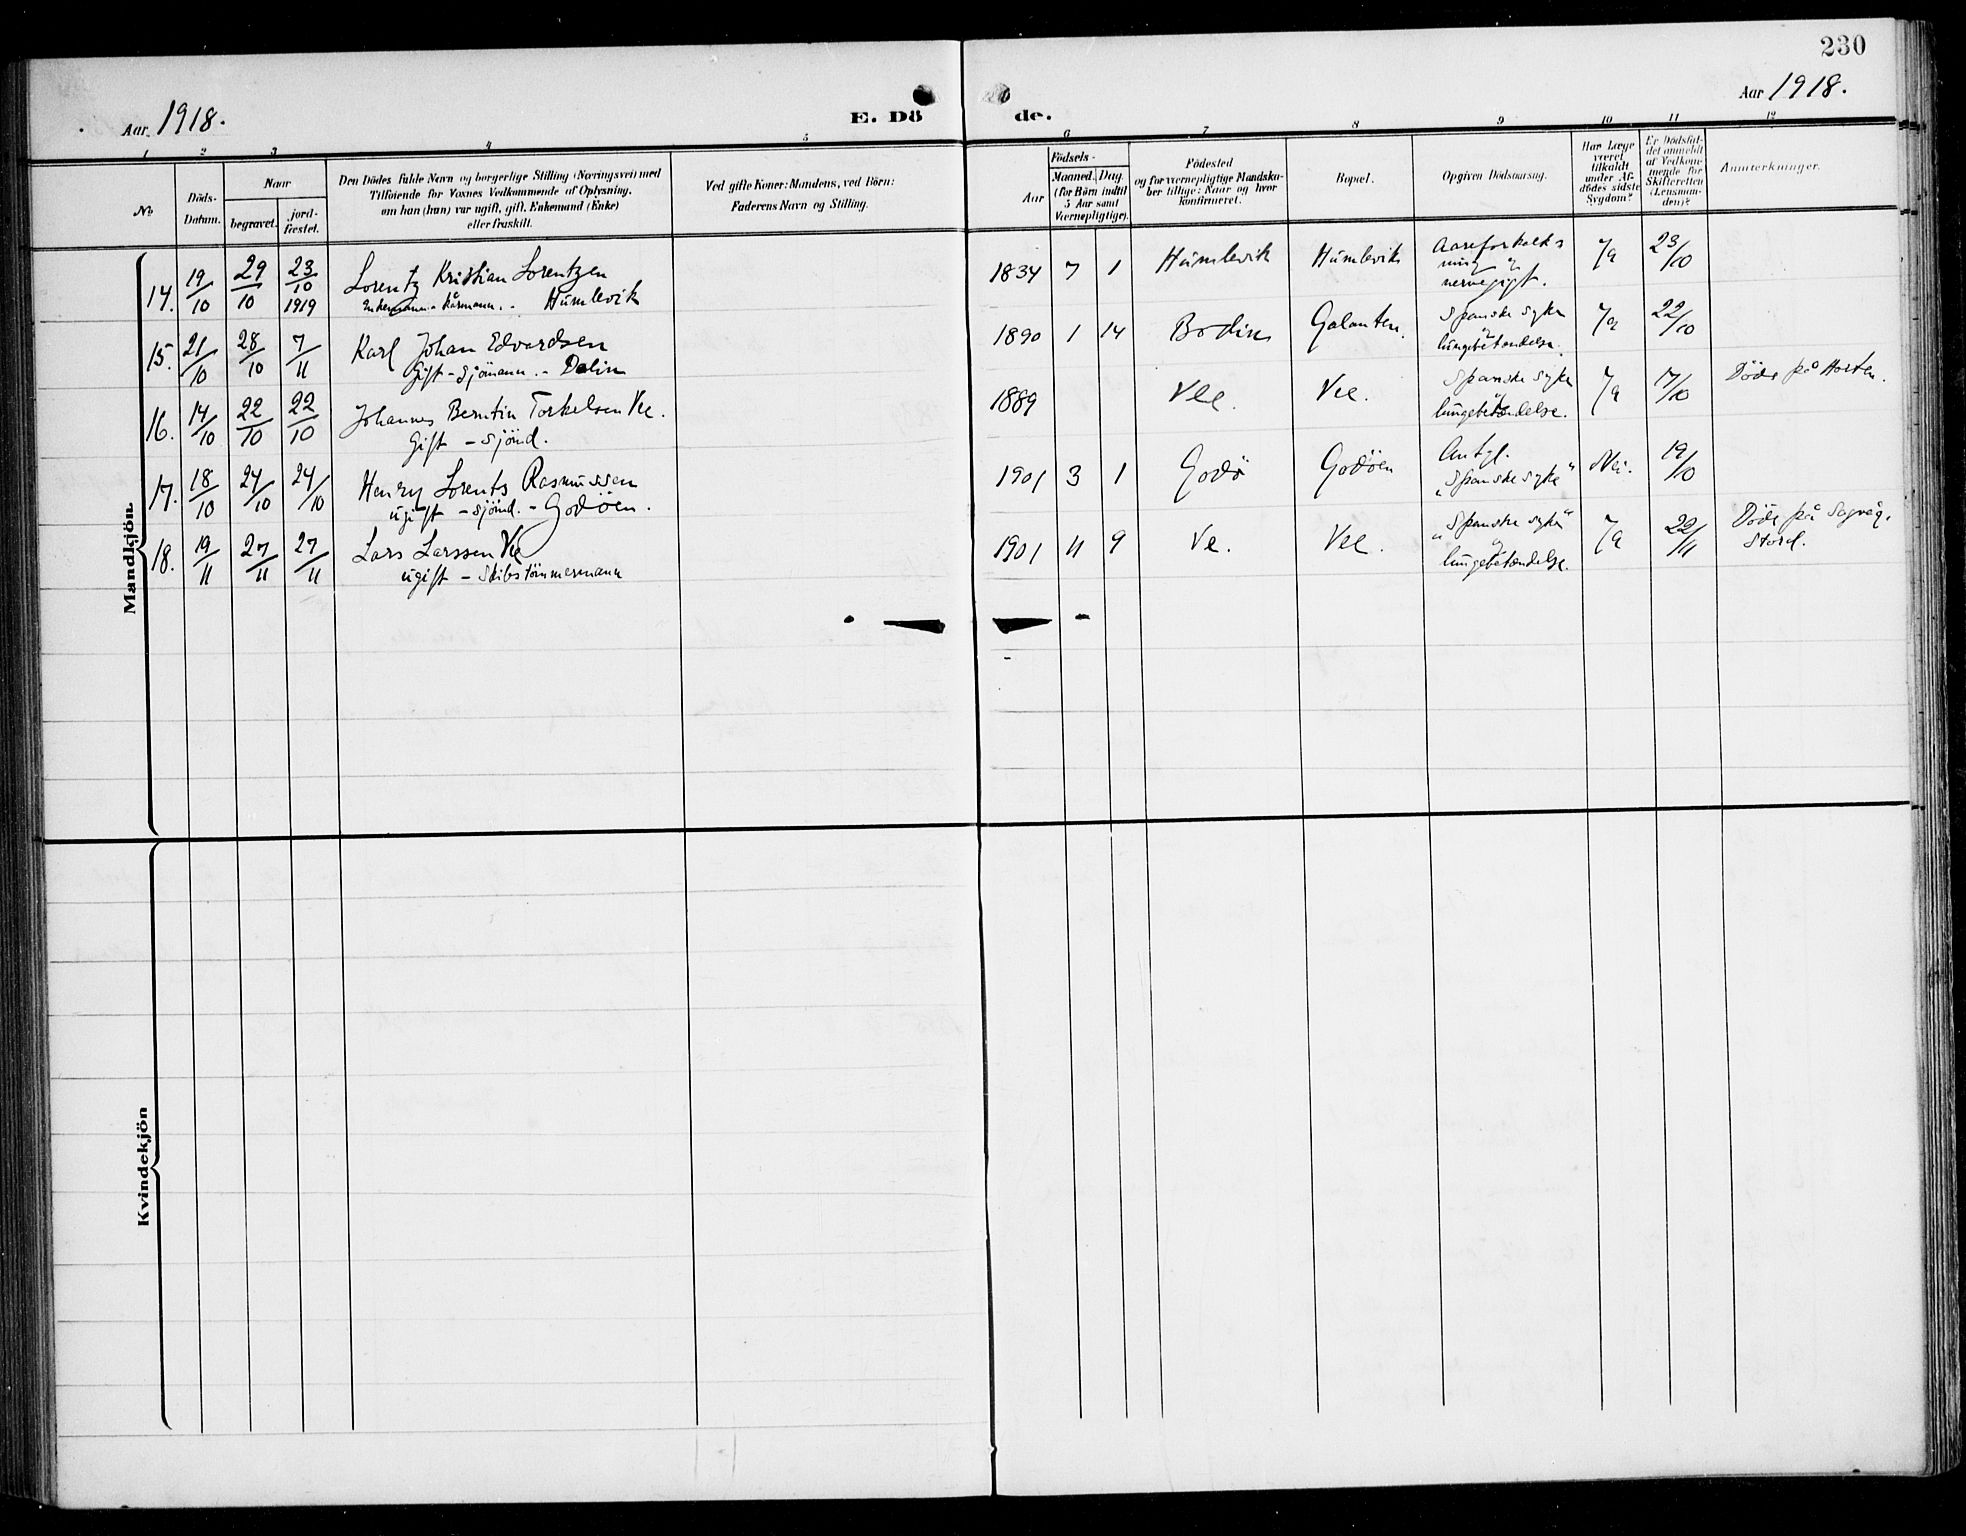 230
Aar 1918.
E. Dö
de.
Aar 1918.
1 2 3 4 5 6 7 8 9 10 11 12
No
Döds-
Datum.
Naar
begravet.
jord-
fæstet.
Den Dödes fulde Navn og borgerlige Stilling (Næringsvei) med
Tilföiende for Voxnes Vedkommende af Oplysning,
om han (hun) var ugift, gift, Enkemand (Enke)
eller fraskilt.
Ved gifte Koner: Mandens, ved Börn:
Faderens Navn og Stilling.
Födsels-
Aar
Maaned. Dag.
(for Börn indtil
5 Aar samt
Værnepligtige).
Födested
og for værnepligtige Mandska-
ber tillige: Naar og hvor
konfirmeret.
Bopæl.
Opgiven Dödsaarsag.
Har Læge
været
tilkaldt
under Af-
dödes sidste
Sygdom?
Er Dödsfal-
det anmeldt
af Vedkom-
mende for
Skifteretten
(Lensman-
den)?
Anmærkninger.
Mandkjön.
14. 19/10 29/10 23/10 1919 Lorentz Kristian Lorentzen
Enkemann - kårmann. - Humlevik
1834 7 1 Humlevik Humlevik Aareforkalk-
ning og
nervegigt. Ja 23/10
15. 21/10 28/10 7/11 Karl Johan Edvardsen
Gift - Sjömann. - Dalin
1890 1 14 Bodin Galanten. Spanske syke
og
lungebetændelse. Ja 22/10
16. 14/10 22/10 22/10 Johannes Berntin Torkelsen Vee.
Gift - sjömd.
1889 Vee. Vee. Spanske syke
og
lungebetændelse. Ja 17/10 Döde på Horten.
17. 18/10 24/10 24/10 Henry Lorents Rasmussen
ugift - sjömd. - Godöen.
1901 3 1 Godö Godöen Antgl.
"Spanske syke" Nei. 19/10
18. 19/11 27/11 27/11 Lars Larssen Ve
ugift - Skibstömmermann
1901 11 9 Ve. Vee. "Spanske syke"
og
lungebetændelse. Ja 22/11 Döde på Sagvåg,
Stord.
Kvindekjön